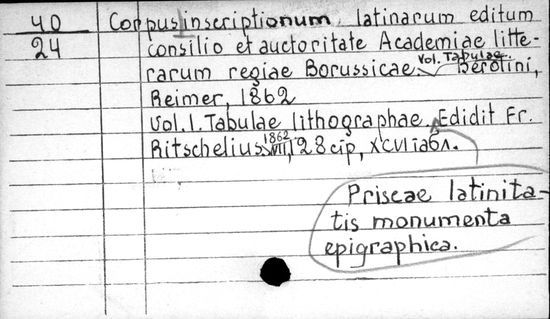 40
24
Corpus inscriptionum latinarum editum
consilio et auctoritate Academiae litte-
rarum regiae Borussicae Vol. Tabulae. Berolini,
Reimer, 1862
Vol. I. Tabulae lithographae. Edidit Fr.
Ritschelius. 1862 VIII, 128 стр, XCVI табл.
Priscae latinita-
tis monumenta
epigraphica.